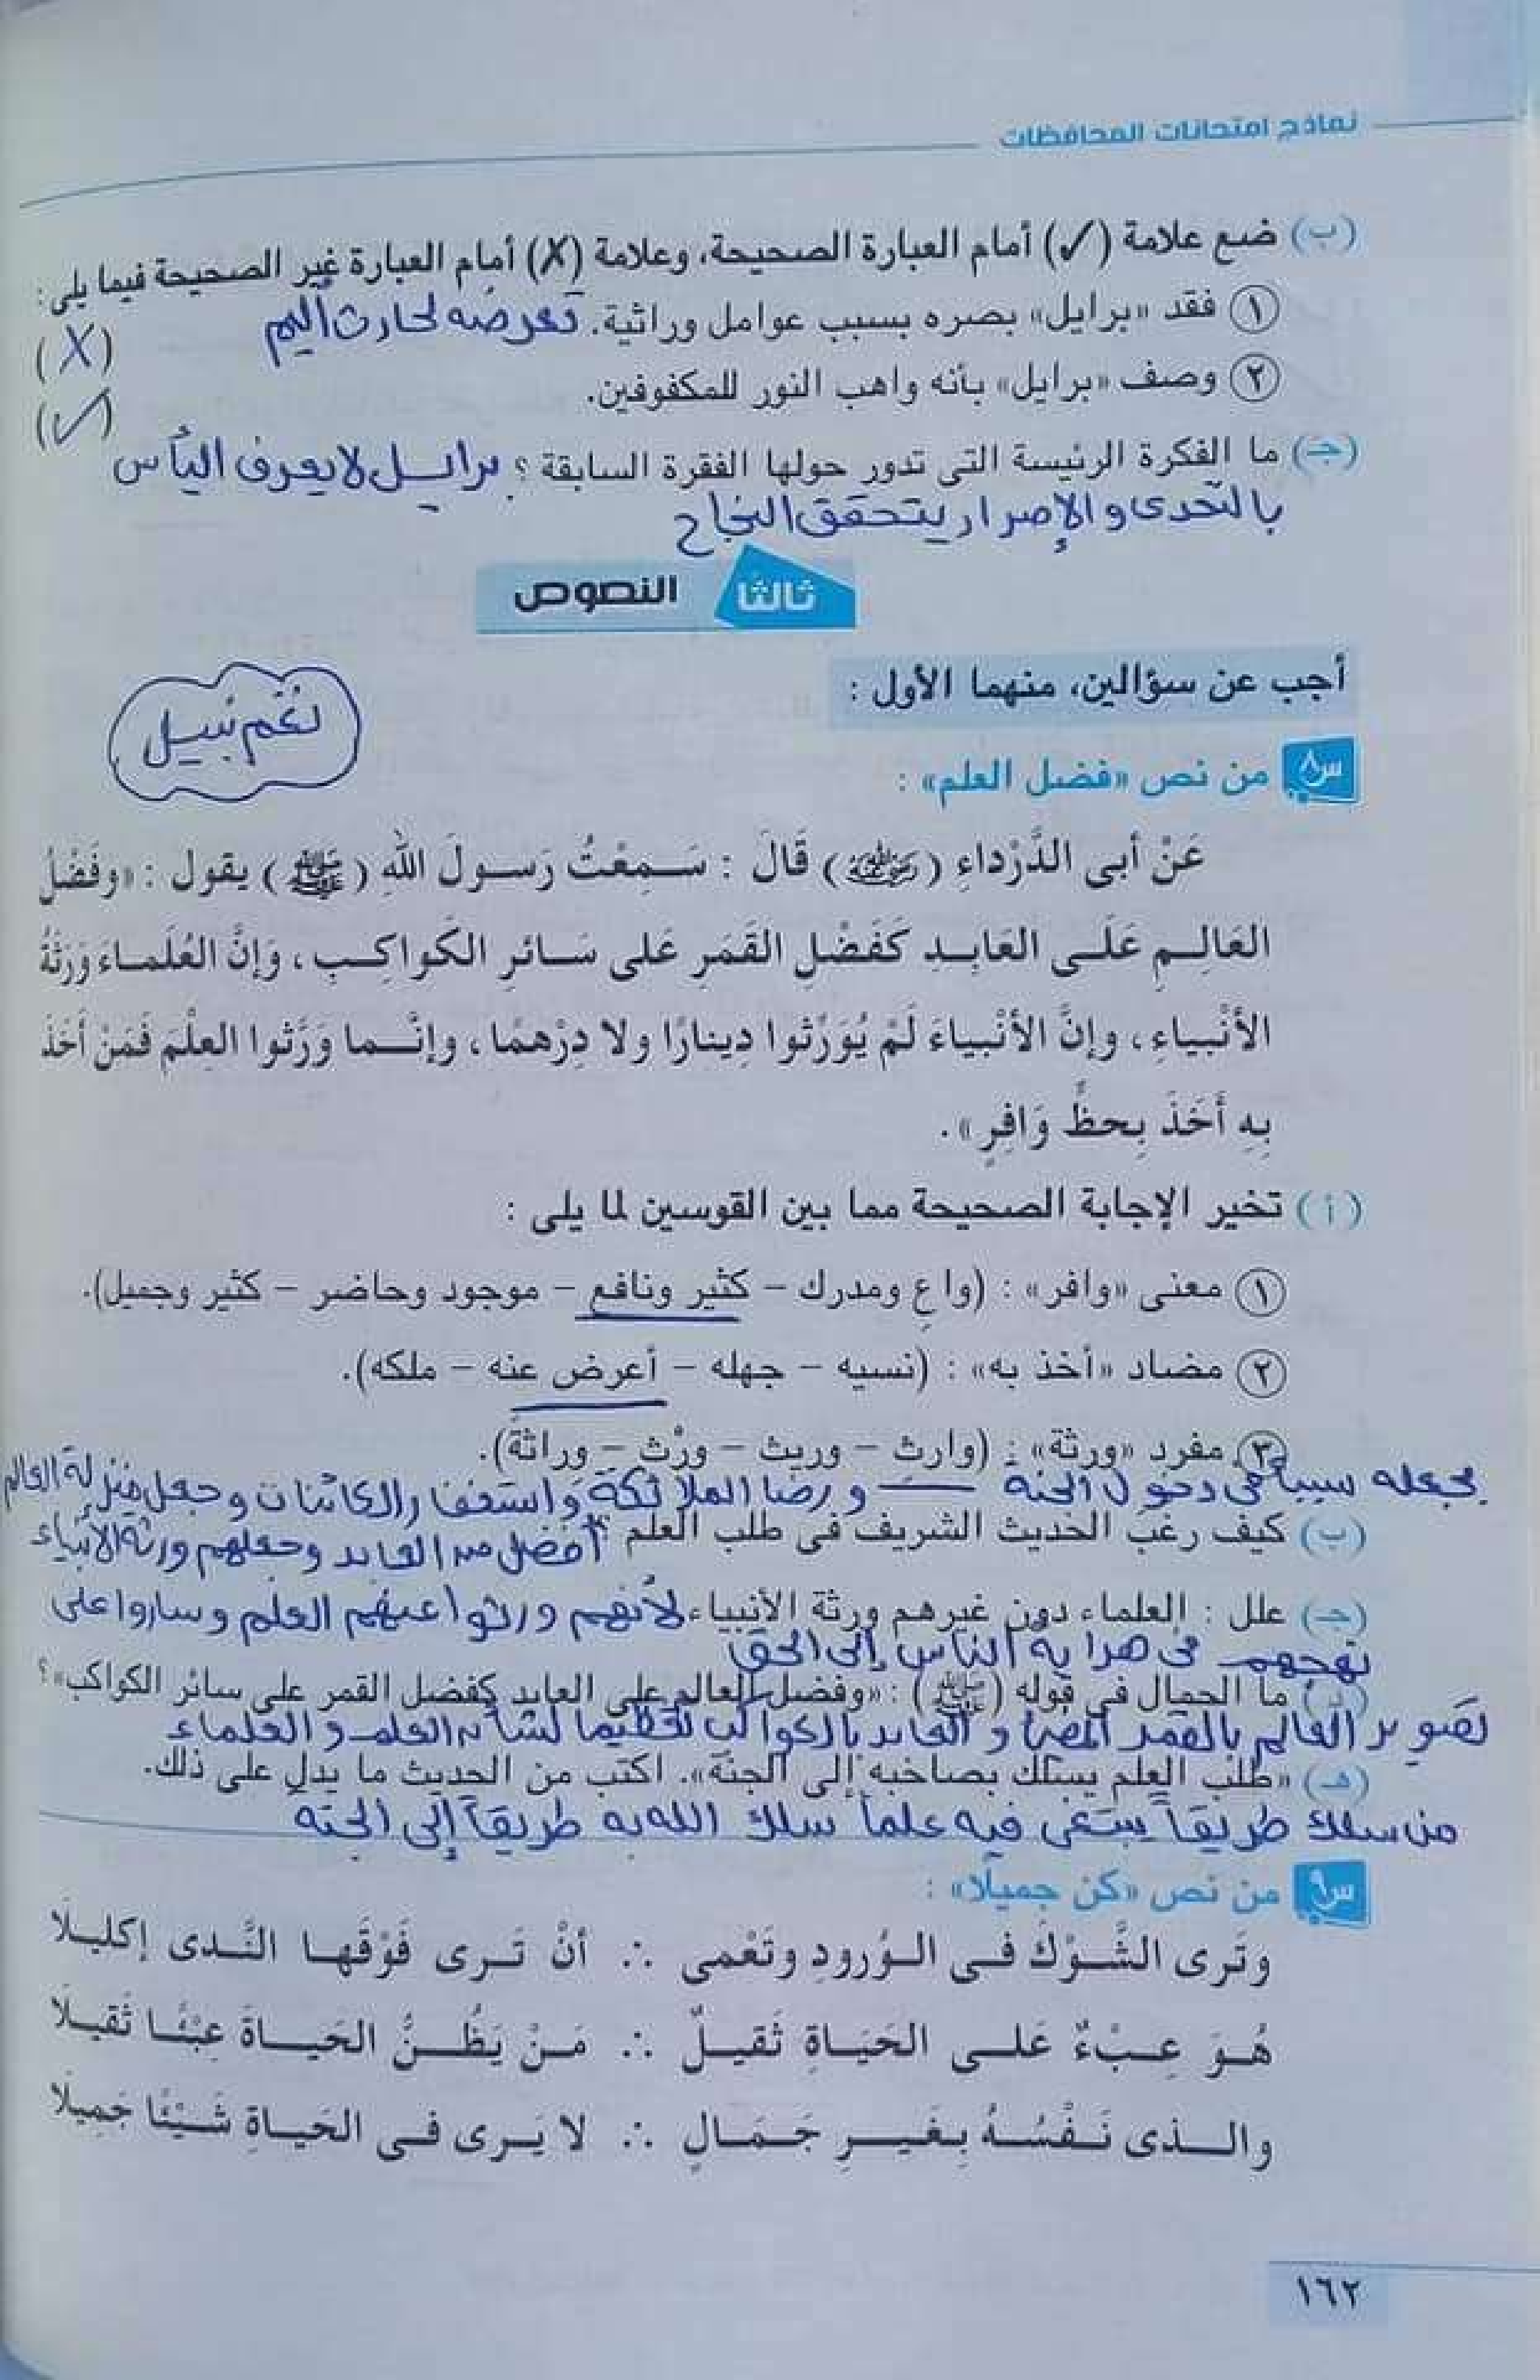 نماذج امتحانات المحافظات
(ب) ضع علامة (✓) أمام العبارة الصحيحة، وعلامة (X) أمام العبارة غير الصحيحة فيما يلى :
① فقد «برايل» بصره بسبب عوامل وراثية. تعرضه لحادث أليم (X)
② وصف «برايل» بأنه واهب النور للمكفوفين. (✓)
(جـ) ما الفكرة الرئيسة التى تدور حولها الفقرة السابقة ؟ برايل لا يعرف اليأس
بالتحدى والإصرار يتحقق النجاح
ثالثًا النصوص
أجب عن سؤالين، منهما الأول :
نغم نبيل
س٨ من نص «فضل العلم» :
عَنْ أبى الدَّرْداءِ (رضي الله عنه) قَالَ : سَمِعْتُ رَسولَ اللهِ (ﷺ) يقول : «وفَضْلُ
العَالِمِ عَلَى العَابِدِ كَفَضْلِ القَمَرِ عَلى سَائرِ الكَواكِبِ، وَإنَّ العُلَماءَ وَرَثَةُ
الأنْبياءِ، وإنَّ الأنْبياءَ لَمْ يُوَرِّثوا دِينارًا ولا دِرْهمًا، وإنَّما وَرَّثوا العِلْمَ فَمَنْ أَخَذَ
بِهِ أَخَذَ بِحظٍّ وَافِرٍ».
(أ) تخير الإجابة الصحيحة مما بين القوسين لما يلى :
① معنى «وافر» : (واعٍ ومدرك – كثير ونافع – موجود وحاضر – كثير وجميل).
② مضاد «أخذ به» : (نسيه – جهله – أعرض عنه – ملكه).
③ مفرد «ورثة» : (وارث – وريث – ورْث – وراثة).
بجعله سبباً فى دخول الجنة ورضا الملائكة واستغفار الكائنات وجعل منزلة العالم
(ب) كيف رغب الحديث الشريف فى طلب العلم ؟ أفضل من العابد وجعلهم ورثة الأنبياء
(جـ) علل : العلماء دون غيرهم ورثة الأنبياء. لأنهم ورثوا عنهم العلم وساروا على
نهجهم فى هداية الناس إلى الحق
(د) ما الجمال فى قوله (ﷺ) : «وفضل العالم على العابد كفضل القمر على سائر الكواكب»؟
تصوير العالم بالقمر المضئ والعابد بالكواكب تعظيما لشأن العلم والعلماء
(هـ) «طلب العلم يسلك بصاحبه إلى الجنة». اكتب من الحديث ما يدل على ذلك.
من سلك طريقاً يبتغى فيه علماً سلك الله به طريقاً إلى الجنة
س٩ من نص «كن جميلًا» :
وتَرى الشَّوْكَ فى الوُرودِ وتَعْمى ∴ أنْ تَرى فَوْقَها النَّدى إكليلَا
هُوَ عِبْءٌ عَلى الحَيَاةِ ثَقيلٌ ∴ مَنْ يَظُنُّ الحَياةَ عِبْئًا ثَقيلَا
والذى نَفْسُهُ بِغَيرِ جَمَالٍ ∴ لا يَرى فى الحَياةِ شَيْئًا جَميلَا
١٦٢